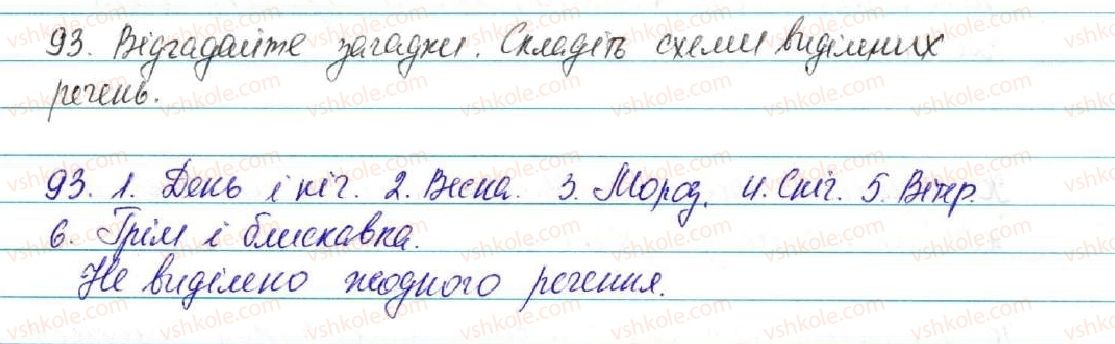 93. Відгадайте загадки. Складіть схеми виділених
речень.
93. 1. День і ніч. 2. Весна. 3. Мороз. 4. Сніг. 5. Вітер.
6. Грім і блискавка.
Не виділено жодного речення.